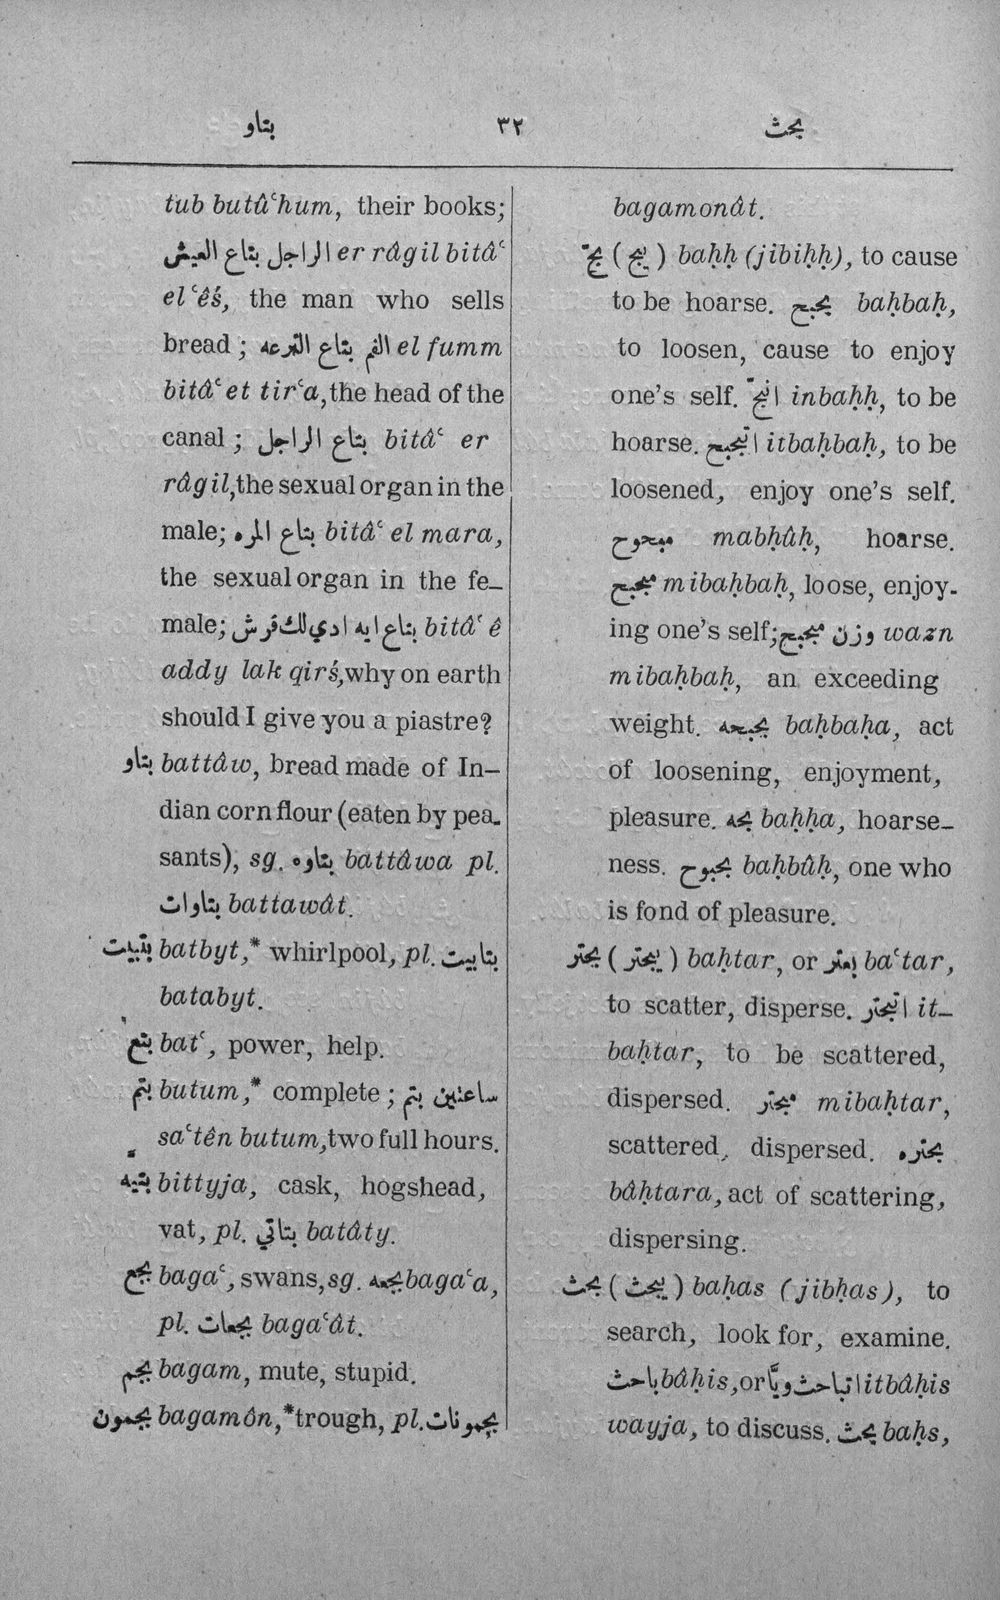 بتاو ٣٢ بحث
tub butûʿhum, their books;
الراجل بتاع العيش er râgil bitâʿ
el ʿêś, the man who sells
bread ; الفم بتاع الترعه el fumm
bitâʿ et tirʿa, the head of the
canal ; بتاع الراجل bitâʿ er
râgil, the sexual organ in the
male; بتاع المره bitâʿ el mara,
the sexual organ in the fe-
male; بتاع ايه ادي لك قرش bitâʿ ê
addy lak qirś, why on earth
should I give you a piastre?
بتاو battâw, bread made of In-
dian corn flour (eaten by pea-
sants), sg. بتاوه battâwa pl.
بتاوات battawât.
بتبيت batbyt,* whirlpool, pl. بتابيت
batabyt.
بتع batʿ, power, help.
بتم butum,* complete ; ساعتين بتم
saʿtên butum, two full hours.
بتيه bittyja, cask, hogshead,
vat, pl. بتاتي batâty.
بجع bagaʿ, swans, sg. بجعه bagaʿa,
pl. بجعات bagaʿât.
بجم bagam, mute, stupid.
بجمون bagamôn,* trough, pl. بجمونات
bagamonât.
بحّ ( يبح ) baḥḥ (jibiḥḥ), to cause
to be hoarse. بحبح baḥbaḥ,
to loosen, cause to enjoy
one's self. انبحّ inbaḥḥ, to be
hoarse. اتبحبح itbaḥbaḥ, to be
loosened, enjoy one's self.
مبحوح mabḥûḥ, hoarse.
مبحبح mibaḥbaḥ, loose, enjoy-
ing one's self; وزن مبحبح wazn
mibaḥbaḥ, an exceeding
weight. بحبحه baḥbaḥa, act
of loosening, enjoyment,
pleasure. بحه baḥḥa, hoarse-
ness. بحبوح baḥbûḥ, one who
is fond of pleasure.
بحتر ( يبحتر ) baḥtar, or بعتر baʿtar,
to scatter, disperse. اتبحتر it-
baḥtar, to be scattered,
dispersed. مبحتر mibaḥtar,
scattered, dispersed. بحتره
bâḥtara, act of scattering,
dispersing.
بحث ( يبحث ) baḥas (jibḥas), to
search, look for, examine.
باحث bâḥis, or اتباحث ويَّا itbâḥis
wayja, to discuss. بحث baḥs,